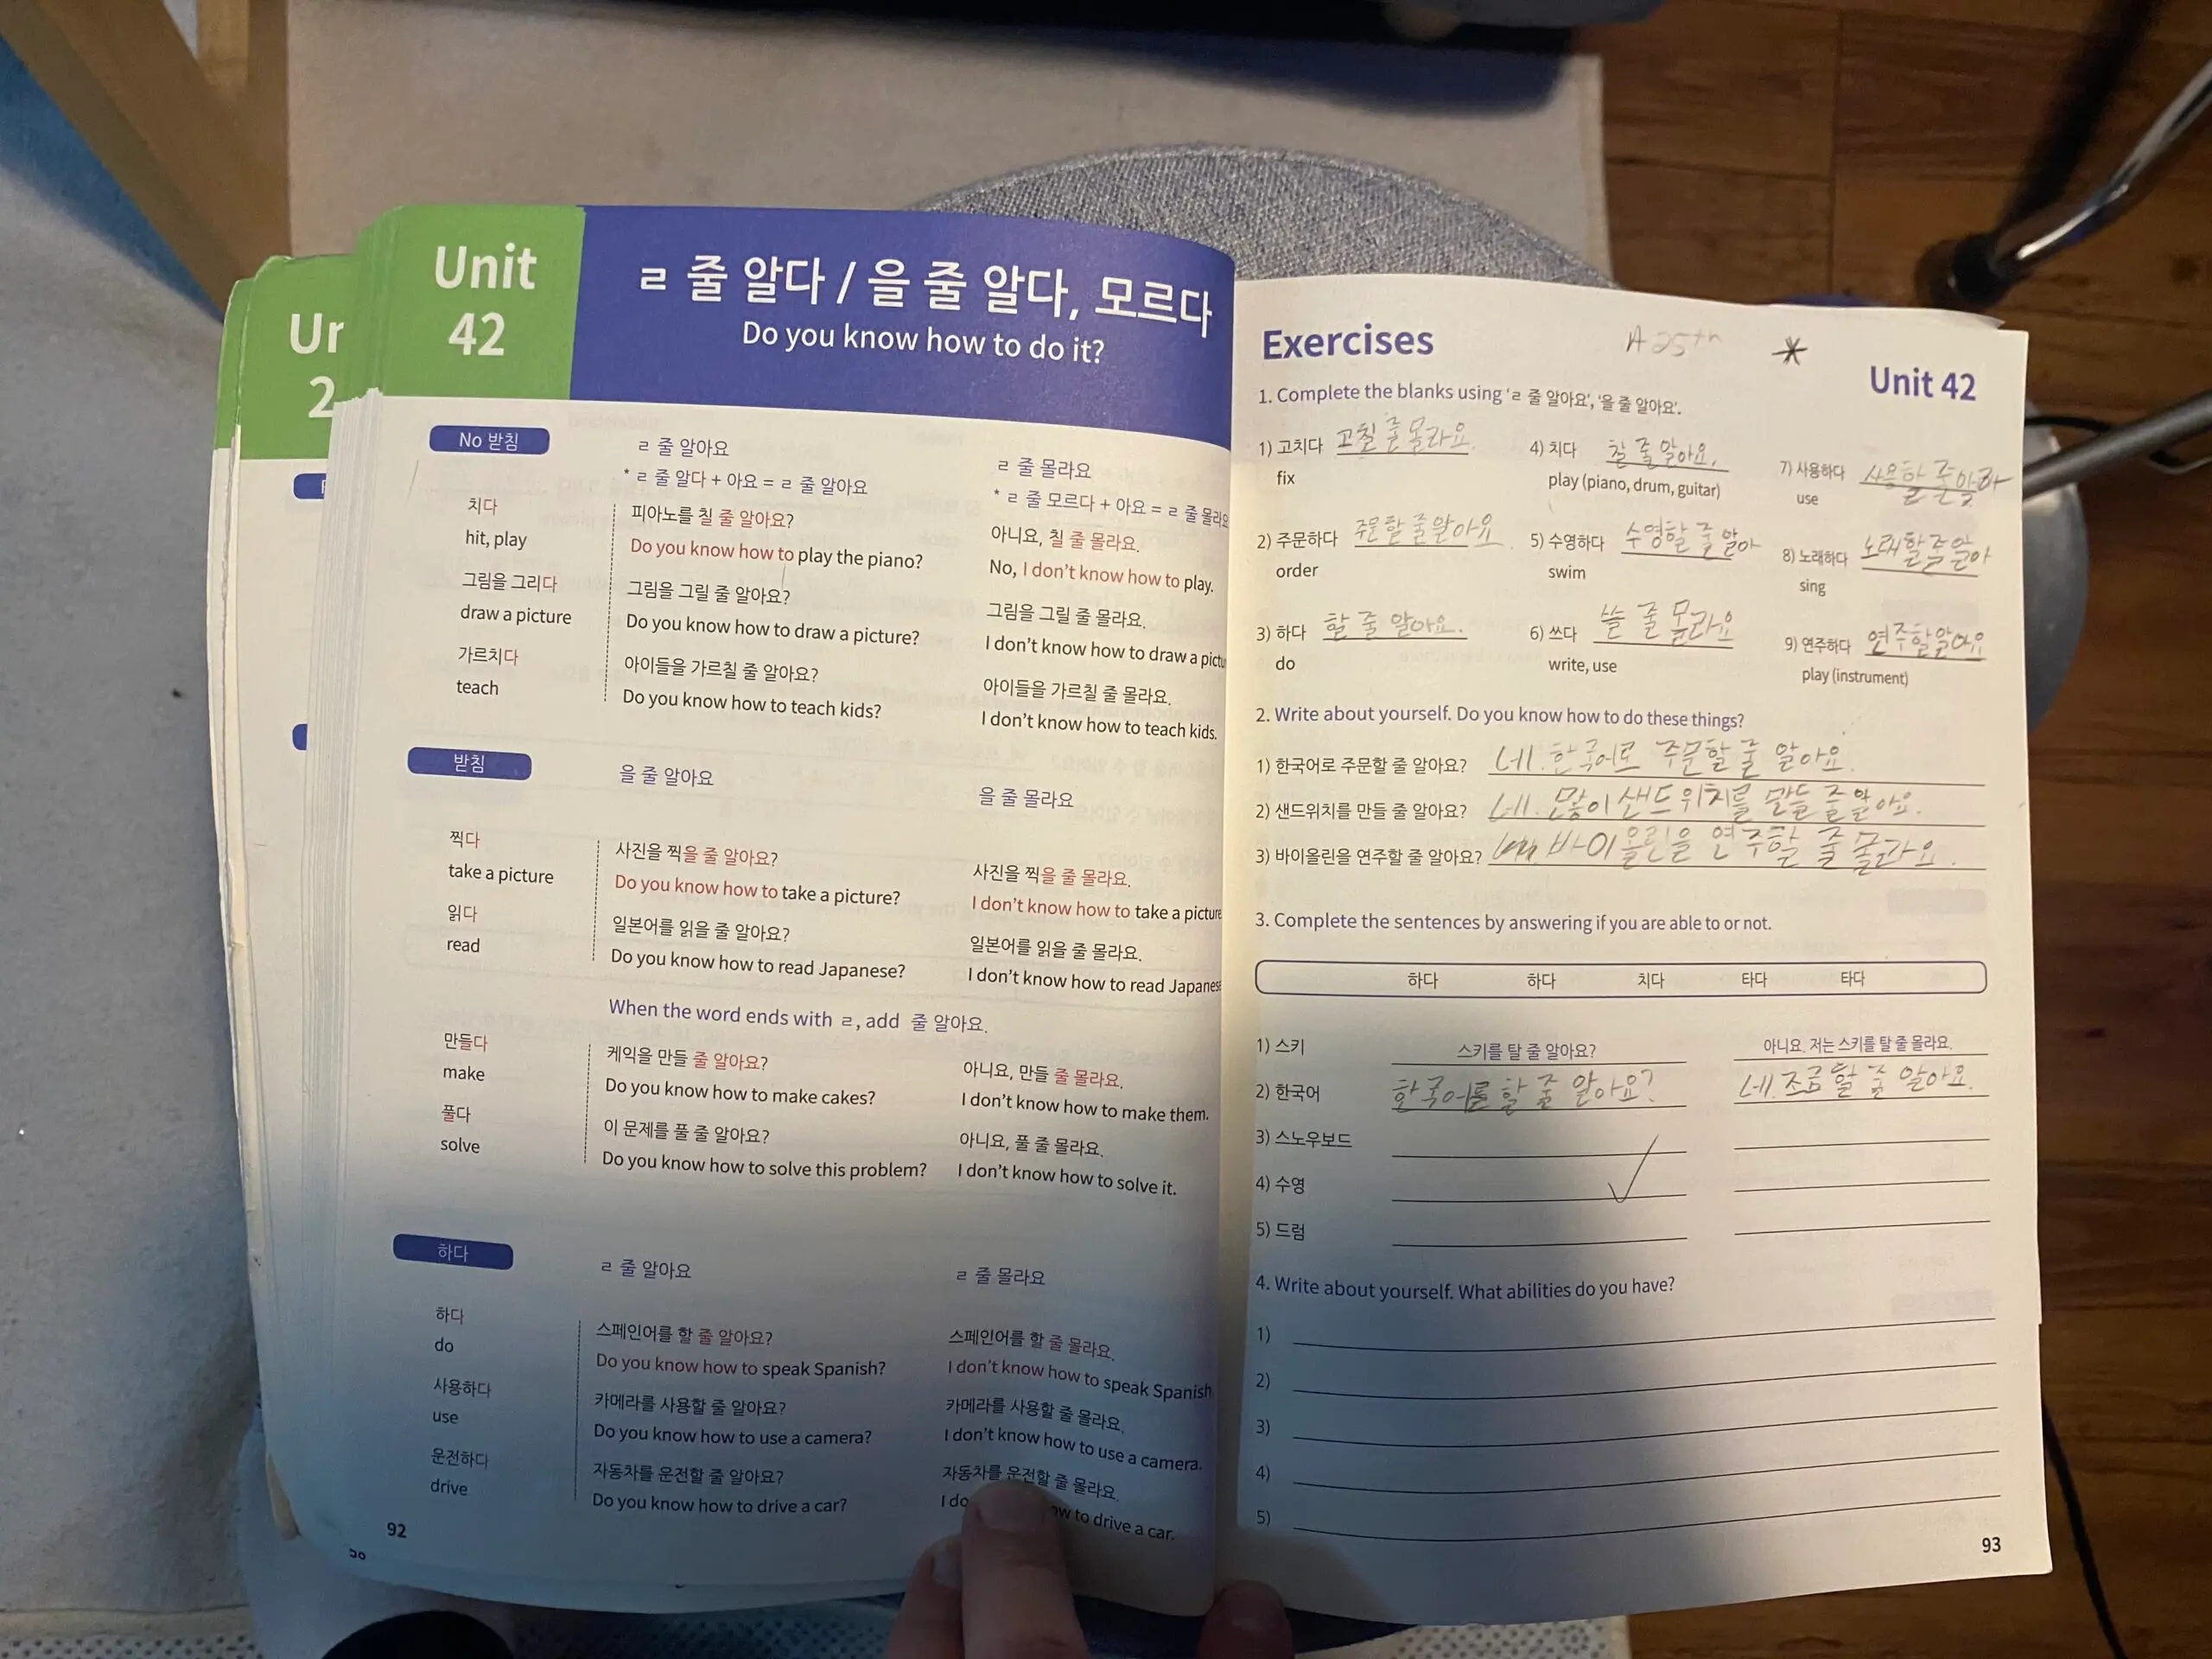 Unit
42
ㄹ 줄 알다 / 을 줄 알다, 모르다
Do you know how to do it?
Ur
2
No 받침
ㄹ 줄 알아요
* ㄹ 줄 알다 + 아요 = ㄹ 줄 알아요
ㄹ 줄 몰라요
* ㄹ 줄 모르다 + 아요 = ㄹ 줄 몰라요
치다
hit, play
피아노를 칠 줄 알아요?
Do you know how to play the piano?
아니요, 칠 줄 몰라요.
No, I don't know how to play.
그림을 그리다
draw a picture
그림을 그릴 줄 알아요?
Do you know how to draw a picture?
그림을 그릴 줄 몰라요.
I don't know how to draw a pictu
가르치다
teach
아이들을 가르칠 줄 알아요?
Do you know how to teach kids?
아이들을 가르칠 줄 몰라요.
I don't know how to teach kids.
받침
을 줄 알아요
을 줄 몰라요
찍다
take a picture
사진을 찍을 줄 알아요?
Do you know how to take a picture?
사진을 찍을 줄 몰라요.
I don't know how to take a picture
읽다
read
일본어를 읽을 줄 알아요?
Do you know how to read Japanese?
일본어를 읽을 줄 몰라요.
I don't know how to read Japanese
When the word ends with ㄹ, add 줄 알아요.
만들다
make
케익을 만들 줄 알아요?
Do you know how to make cakes?
아니요, 만들 줄 몰라요.
I don't know how to make them.
풀다
solve
이 문제를 풀 줄 알아요?
Do you know how to solve this problem?
아니요, 풀 줄 몰라요.
I don't know how to solve it.
하다
ㄹ 줄 알아요
ㄹ 줄 몰라요
하다
do
스페인어를 할 줄 알아요?
Do you know how to speak Spanish?
스페인어를 할 줄 몰라요.
I don't know how to speak Spanish
사용하다
use
카메라를 사용할 줄 알아요?
Do you know how to use a camera?
카메라를 사용할 줄 몰라요.
I don't know how to use a camera.
운전하다
drive
자동차를 운전할 줄 알아요?
Do you know how to drive a car?
자동차를 운전할 줄 몰라요.
I do ow to drive a car.
92
Exercises
A 25th
*
Unit 42
1. Complete the blanks using 'ㄹ 줄 알아요', '을 줄 알아요'.
1) 고치다 고칠 줄 몰라요.
fix
4) 치다 칠 줄 알아요.
play (piano, drum, guitar)
7) 사용하다 사용할 줄
use
2) 주문하다 주문할 줄 알아요
order
5) 수영하다 수영할 줄 알아
swim
8) 노래하다 노래할 줄 알아
sing
3) 하다 할 줄 알아요.
do
6) 쓰다 쓸 줄 몰라요
write, use
9) 연주하다 연주할 알아요
play (instrument)
2. Write about yourself. Do you know how to do these things?
1) 한국어로 주문할 줄 알아요? 네. 한국어로 주문할 줄 알아요.
2) 샌드위치를 만들 줄 알아요? 네. 많이 샌드위치를 만들 줄 알아요.
3) 바이올린을 연주할 줄 알아요? 바이올린을 연주할 줄 몰라요.
3. Complete the sentences by answering if you are able to or not.
하다 하다 치다 타다 타다
1) 스키 스키를 탈 줄 알아요? 아니요. 저는 스키를 탈 줄 몰라요.
2) 한국어 한국어를 할 줄 알아요? 네. 조금 할 줄 알아요.
3) 스노우보드
4) 수영
5) 드럼
4. Write about yourself. What abilities do you have?
1)
2)
3)
4)
5)
93